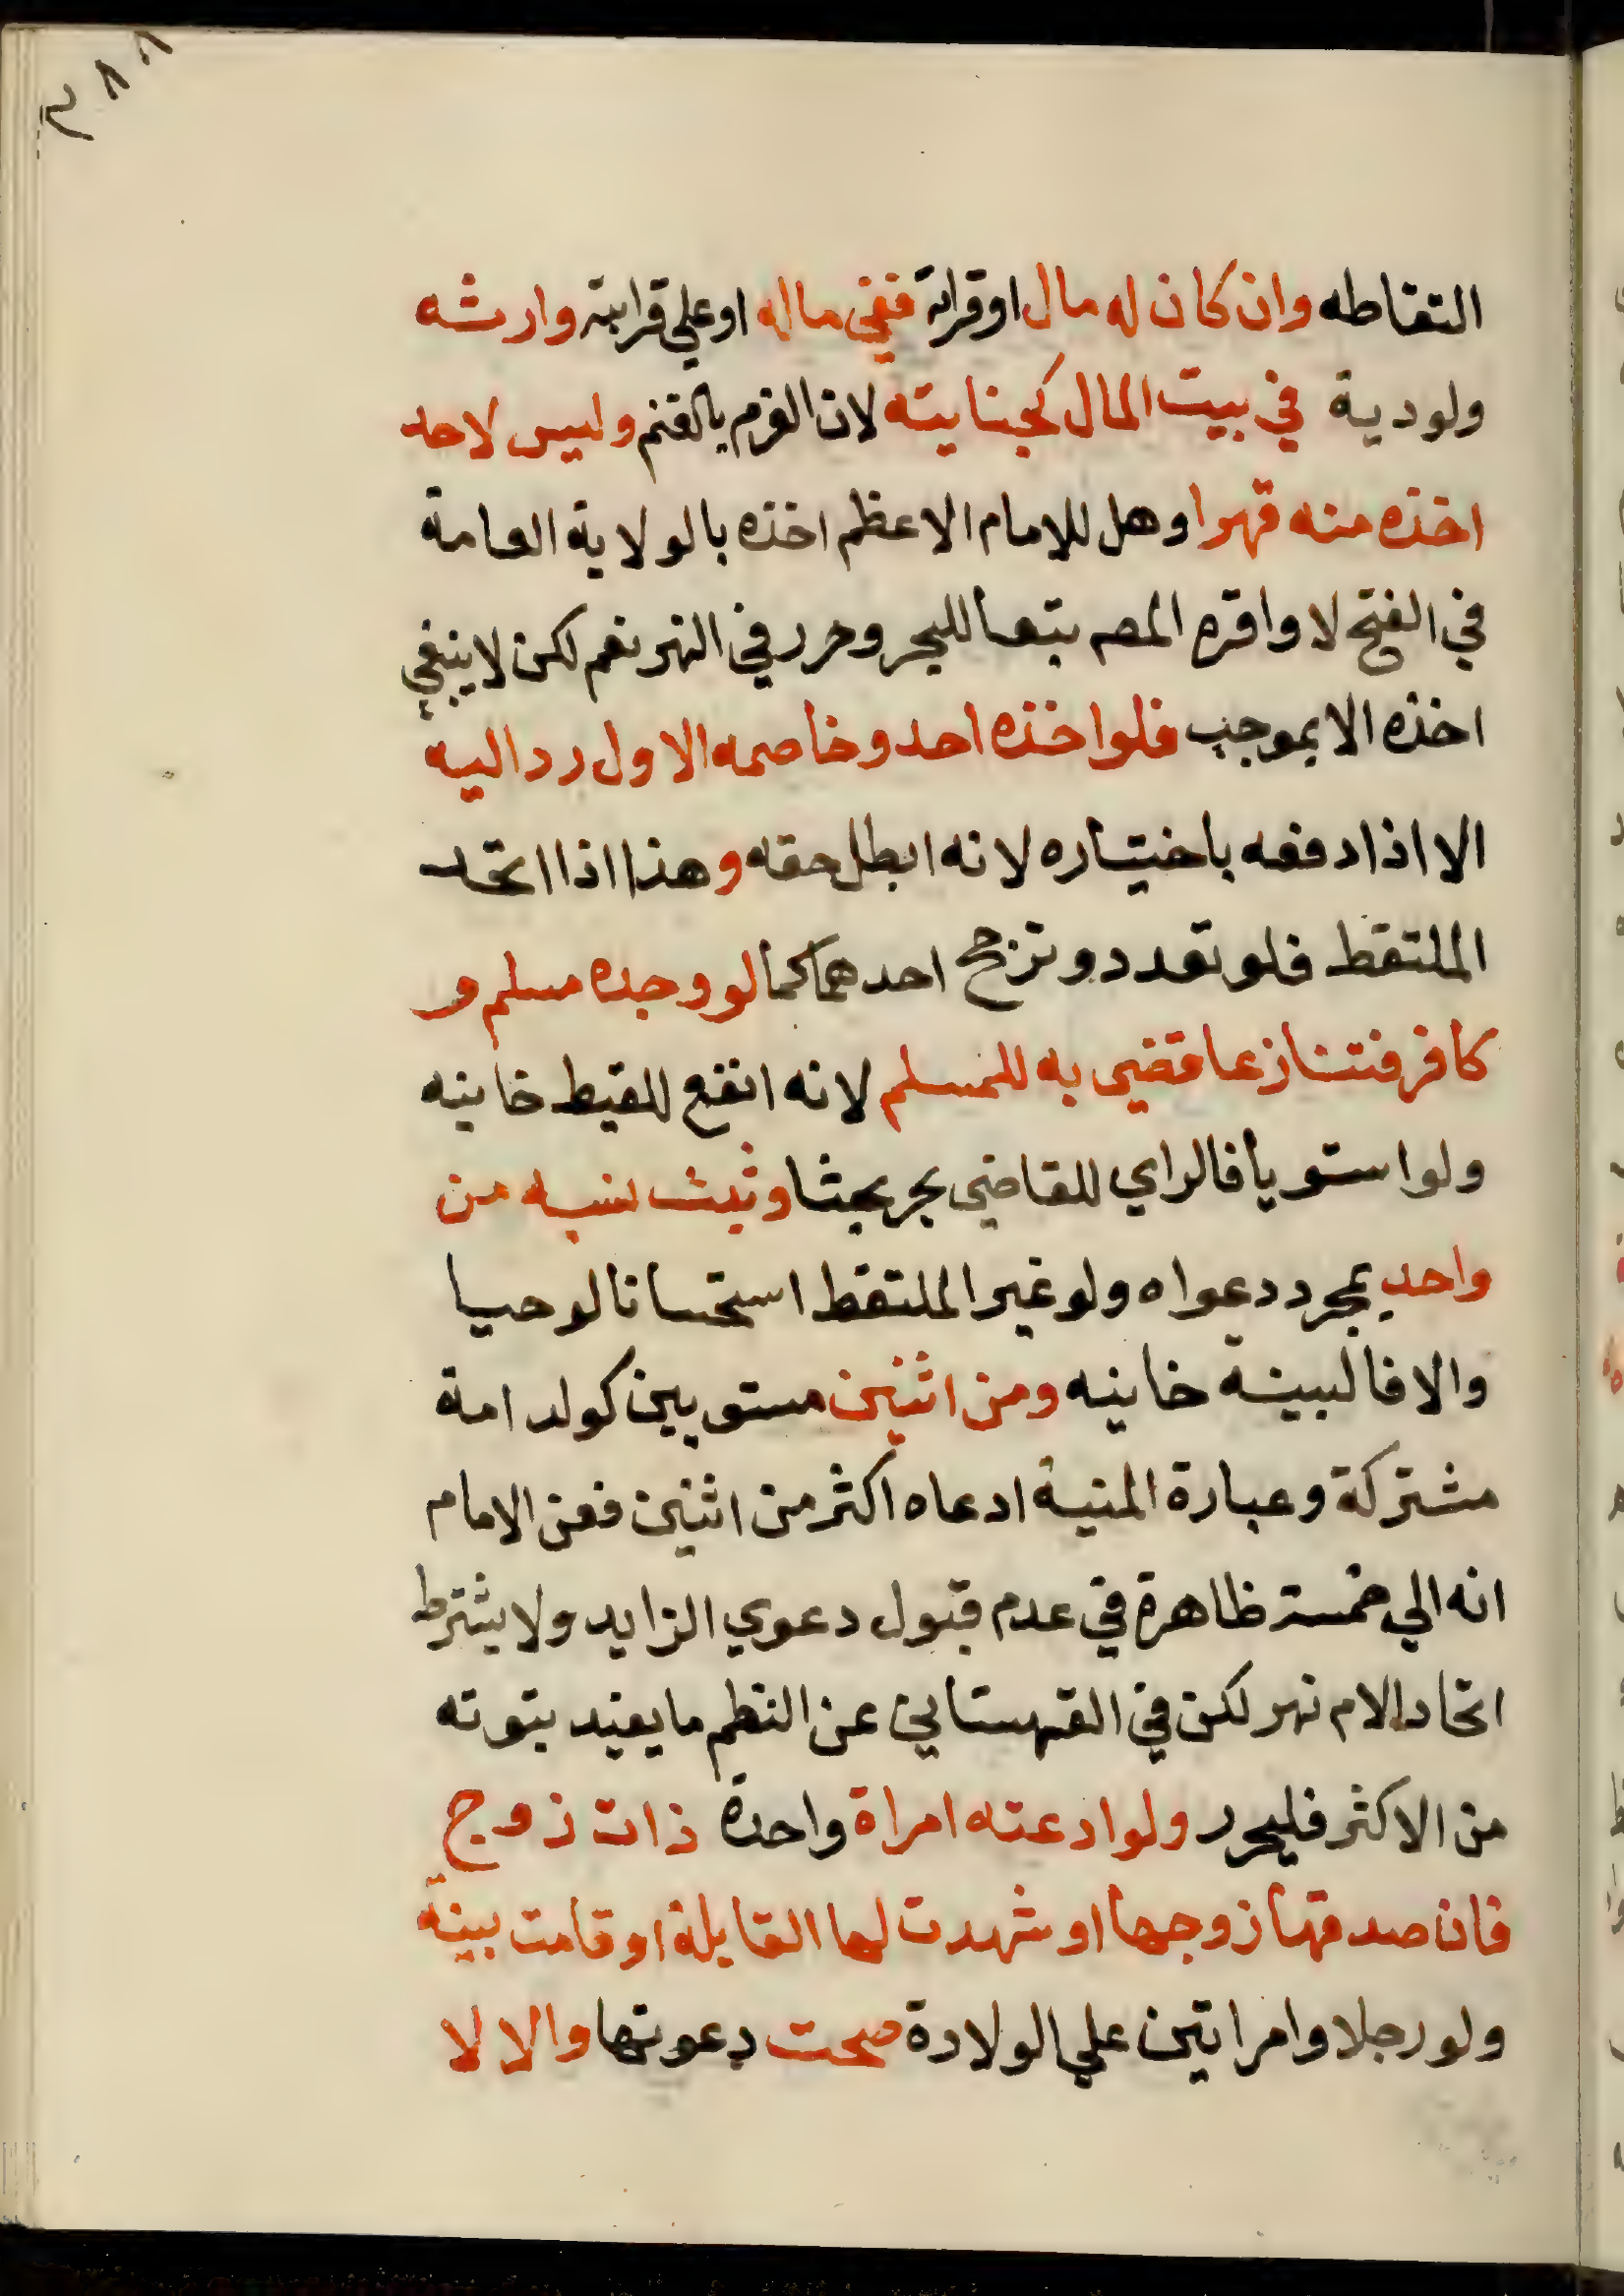 ٣٨٨
التقاطه وان كان له مال او قرابة ففي ماله او علي قرابته وارثه
ولو دية في بيت المال كجنايته لان الغرم بالغنم وليس لاحد
اخذه منه قهرا وهل للامام الاعظم اخذه بالولاية العامة
في الفتح لا واقره المص تبعا للبحر وحرر في النهر نعم لكن لا ينبغي
اخذه الا بموجب فلو اخذه احد وخاصمه الاول رد اليه
الا اذا دفعه باختياره لانه ابطل حقه وهذا اذا اتحد
الملتقط فلو تعدد وترجح احدهما كما لو وجده مسلم و
كافر فتنازعا قضي به للمسلم لانه انفع للقيط خانيه
ولو استويا فالراي للقاضي بحر بحثا وثبت نسبه من
واحد بمجرد دعواه ولو غير الملتقط استحسانا لو حيا
والا فالبينة خانيه ومن اثنين مستويين كولد امة
مشتركة وعبارة المنية ادعاه اكثر من اثنين فعن الامام
انه الي خمسة ظاهرة في عدم قبول دعوي الزايد ولا يشترط
اتحاد الام نهر لكن في القهستاني عن النظم ما يفيد بثوته
من الاكثر فليحرر ولو ادعته امراة واحدة ذات زوج
فان صدقها زوجها او شهدت لها القابلة او قامت بينة
ولو رجلا وامراتين علي الولادة صحت دعوتها والا لا